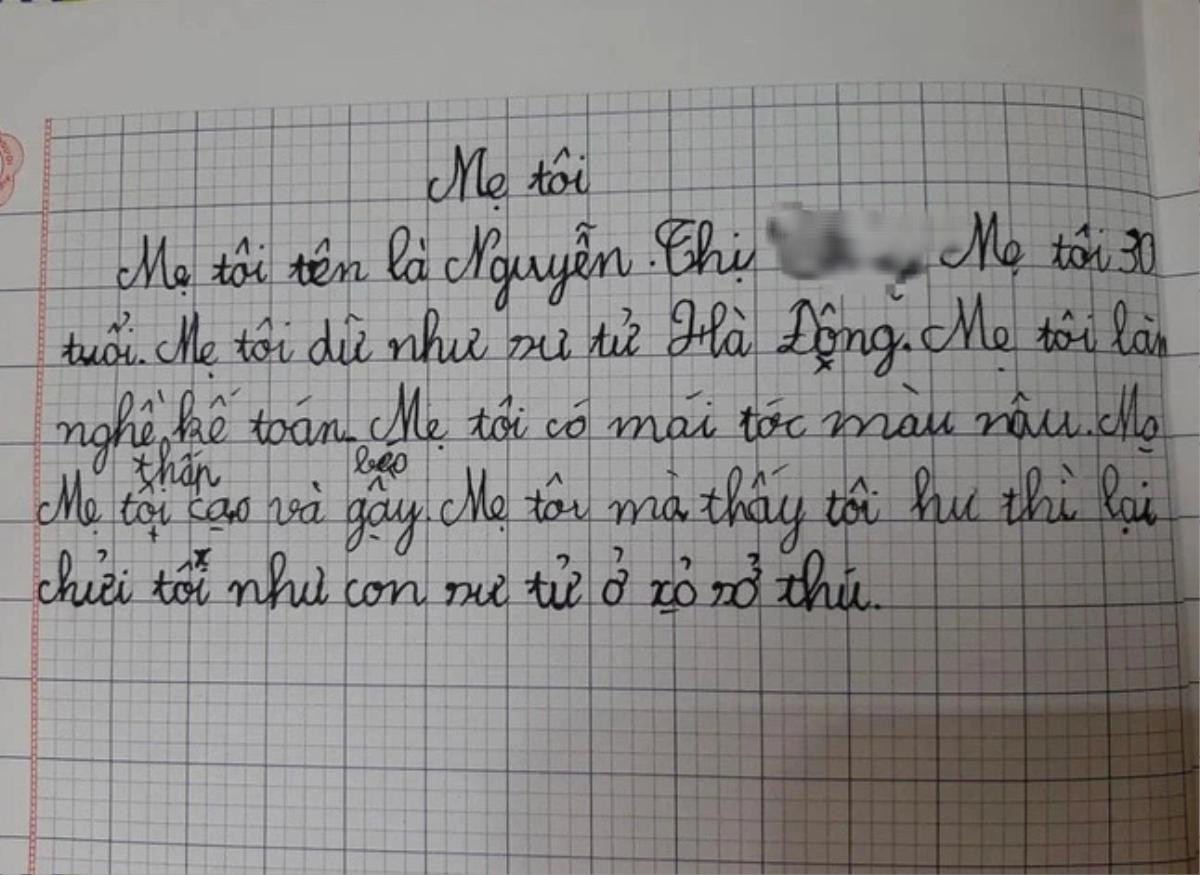 Mẹ tôi
Mẹ tôi tên là Nguyễn Thị Mẹ tôi 30
tuổi. Mẹ tôi dữ như sư tử Hà Động. Mẹ tôi làm
nghề kế toán. Mẹ tôi có mái tóc màu nâu. Mẹ
thấn beo
Mẹ tôi cao và gậy. Mẹ tôi mà thấy tôi hư thì lại
chửi tôi như con sư tử ở xỏ sở thú.